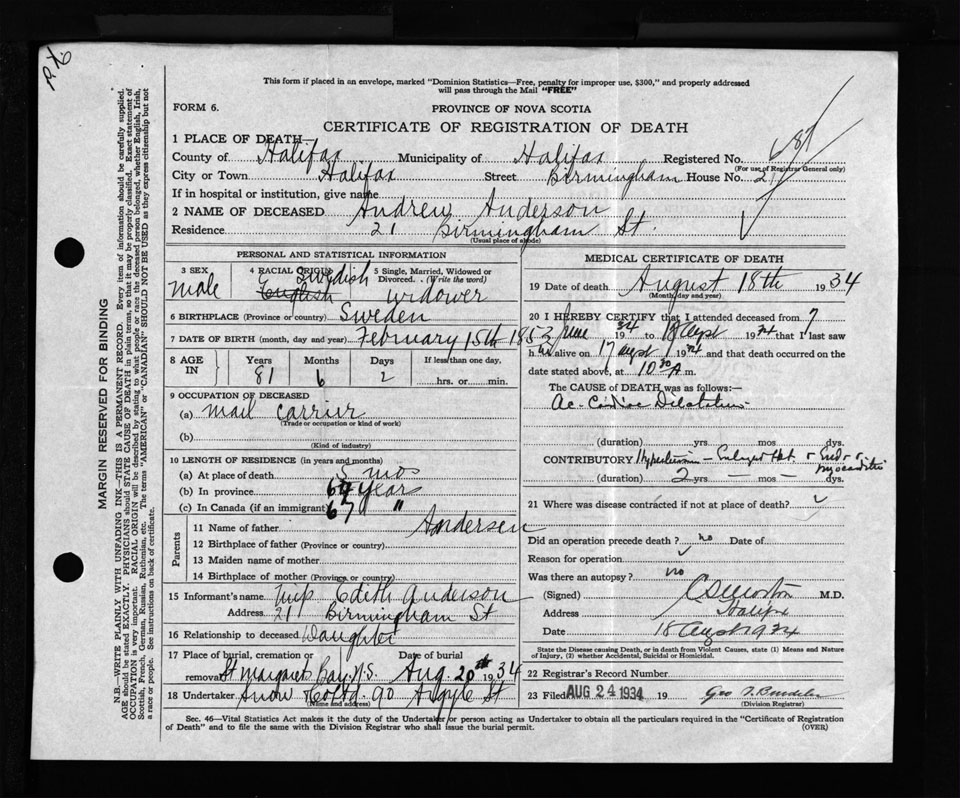 This form if placed in an envelope, marked "Dominion Statistics—Free, penalty for improper use, $300," and properly addressed
will pass through the Mail "FREE"
FORM 6.
PROVINCE OF NOVA SCOTIA
CERTIFICATE OF REGISTRATION OF DEATH
1 PLACE OF DEATH
County of Halifax Municipality of Halifax Registered No. 687
(For use of Registrar General only)
City or Town Halifax Street Birmingham House No. 21
If in hospital or institution, give name
2 NAME OF DECEASED Andrew Anderson
Residence 21 Birmingham St.
(Usual place of abode)
PERSONAL AND STATISTICAL INFORMATION
3 SEX 4 RACIAL ORIGIN 5 Single, Married, Widowed or
Divorced. (Write the word)
Male English Swedish widower
6 BIRTHPLACE (Province or country) Sweden
7 DATE OF BIRTH (month, day and year) February 15th 1853
8 AGE IN Years Months Days If less than one day,
81 6 2 hrs. or min.
9 OCCUPATION OF DECEASED
(a) Mail carrier
(Trade or occupation or kind of work)
(b)
(Kind of industry)
10 LENGTH OF RESIDENCE (in years and months)
(a) At place of death 5 mos
(b) In province 67 years
(c) In Canada (if an immigrant) 67 "
Parents
11 Name of father Andersen
12 Birthplace of father (Province or country)
13 Maiden name of mother
14 Birthplace of mother (Province or country)
15 Informant's name Miss Edith Anderson
Address 21 Birmingham St
16 Relationship to deceased Daughter
17 Place of burial, cremation or Date of burial
removal St Margaret Bay N.S. Aug. 20th 1934
18 Undertaker Snow Co Ltd 90 Argyle St
(Name and address)
MEDICAL CERTIFICATE OF DEATH
19 Date of death August 18th 1934
(Month, day and year)
20 I HEREBY CERTIFY that I attended deceased from 7
June 1934 to 18 Augst 1934 that I last saw
h im alive on 17 augst 1934 and that death occurred on the
date stated above, at 10 30 A.m.
The CAUSE of DEATH was as follows:—
Ac. Cardiac Dilatation
(duration) yrs. mos dys.
CONTRIBUTORY Hypertension – Enlarged Hrt & End - &
myocarditis
(duration) 2 yrs. – mos – dys.
21 Where was disease contracted if not at place of death?
Did an operation precede death? no Date of
Reason for operation
Was there an autopsy? no
(Signed) C S Morton M.D.
Address Halifax
Date 18 Augst 1934
State the Disease causing Death, or in death from Violent Causes, state (1) Means and Nature
of Injury, (2) whether Accidental, Suicidal or Homicidal.
22 Registrar's Record Number
23 Filed AUG 24 1934 Geo
(Division Registrar)
Sec. 46—Vital Statistics Act makes it the duty of the Undertaker or person acting as Undertaker to obtain all the particulars required in the "Certificate of Registration
of Death" and to file the same with the Division Registrar who shall issue the burial permit. (OVER)
MARGIN RESERVED FOR BINDING
N.B.—WRITE PLAINLY WITH UNFADING INK—THIS IS A PERMANENT RECORD. Every item of information should be carefully supplied.
AGE should be stated EXACTLY. PHYSICIANS should STATE CAUSE OF DEATH in plain terms, so that it may be properly classified. Exact statement of
OCCUPATION is very important. RACIAL ORIGIN will be described by stating to what people or race the deceased person belonged, whether English, Irish,
Scotch, French, German, Russian, Ruthenian, etc. The terms "AMERICAN" or "CANADIAN" SHOULD NOT BE USED as they express citizenship but not
a race or people. See instructions on back of certificate.